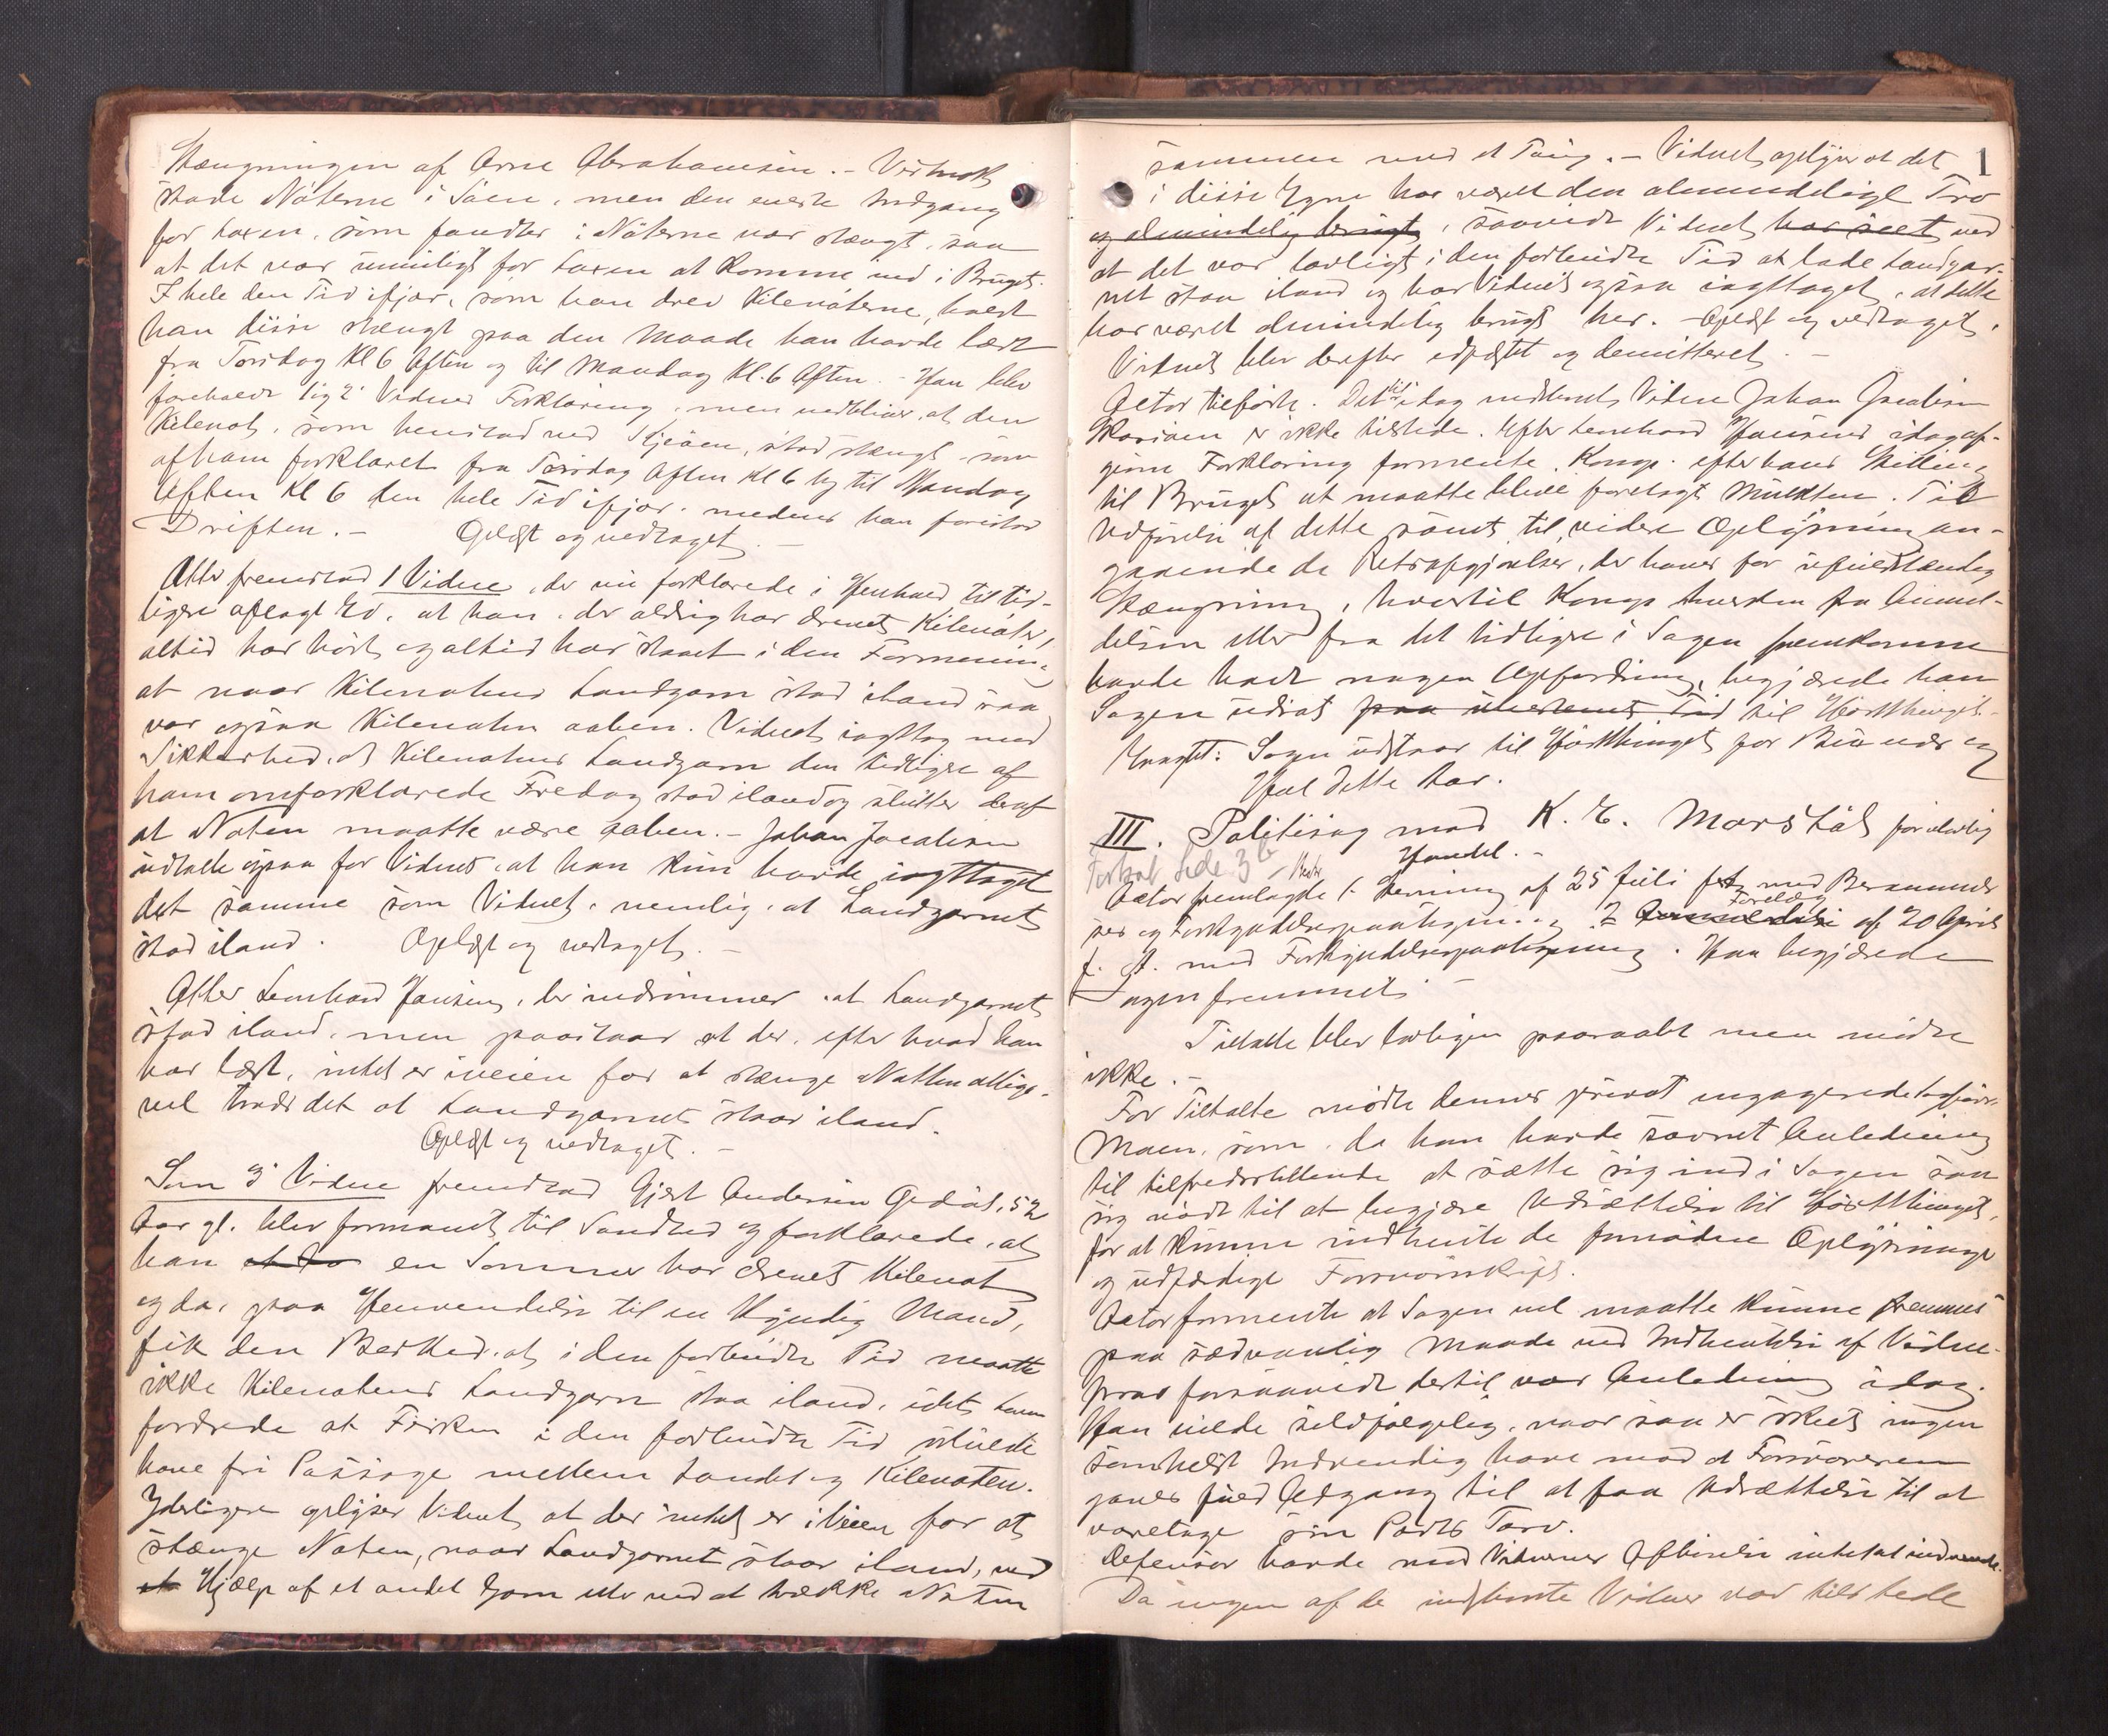 Stængningen af Arne Abrahamsen. - Vistnok
stode Nöterne i Söen, men den eneste Indgang
for Laxen, som fandtes i Nöterne var stængt, saa
at det var umuligt for Laxen at komme ind i Bruget.
I hele den Tid ifjor, som han drev Kilenöterne, holdt
han disse stængt paa den Maade han havde lært
fra Torsdag Kl 6 Aften og til Mandag Kl. 6 Aften. - Han blev
foreholdt sig 2' Vidnes Forklaring, men vedbliver, at den
Kilenot, som henstod ved Skjeåen, stod stængt som
af ham forklaret fra Torsdag Aften Kl 6 og til Mandag
Aften Kl 6 den hele Tid ifjor, medens han forestod
Driften. - Oplæst og vedtaget. -
Atter fremstod 1 Vidne, der nu forklarede i Henhold til tid-
ligere aflagt Ed, at han, der aldrig har drevet Kilenöter,
altid har hört og altid har staaet i den Formening
at naar Kilenotens Landgarn stod iland saa
var ogsaa Kilenoten aaben. Vidnet iagttog med
Sikkerhed, at Kilenotens Landgarn den tidligere af
ham omforklarede Fredag stod iland og slutter deraf
at Noten maatte være aaben. - Johan Jacobsen
udtalte ogsaa for Vidnet, at han kun havde iagttaget
det samme som Vidnet, nemlig, at Landgarnet
stod iland. Oplæst og vedtaget. -
Atter Lenhard Hansen, der indrömmer, at Landgarnet
stod iland, men paastaar at der, efter hvad han
har lært, intet er iveien for at stænge Noten allige-
vel trods det at Landgarnet staar iland.
Oplæst og vedtaget. -
Som 3' Vidne fremstod Gjert Andersen Gedås, 52
Aar gl. blev formanet til Sandhed og forklarede, at
han at da en Sommer har drevet Kilenot
og da, paa Henvendelse til en kyndig Mand,
fik den Besked, at i den forbudte Tid maatte
ikke Kilenotens Landgarn staa iland, idet Loven
fordrede at Fisken i den forbudte Tid skulde
have fri Passage mellem Landet og Kilenoten.
Yderligere oplyser Vidnet, at der intet er iveien for at
stænge Noten, naar Landgarnet staar iland, ved
et Hjælp af et andet Garn eller ved at trække Noten
1
sammen med et Toug. - Vidnet oplyser at det
i disse Egne har været den almindelige Tro
og almindelig brugt, saavidt Vidnet har seet ved
at det var lovligt i den forbudte Tid at lade Landgar-
net staa iland og har Vidnet ogsaa iagttaget, at dette
har været almindelig brugt her. - Oplæst og vedtaget.
Vidnet blev derefter edfæstet og demitteret. -
Actor tilförte. Det til idag indstevnte Vidne Johan Jacobsen
er ikke tilstede. Efter Lenhard Hansens idag af-
givne Forklaring formente Komp. efter hans Stilling
til Bruget at maatte blive forelagt Mulkten. Til
Udförelse af dette samt til videre Oplysning an-
gaaende de Retsafgjörelser, der haves for ufuldstændig
Stængning, hvortil Komp hverken fra Anmel-
delsen eller fra det tidligere i Sagen fremkomne
havde havt nogen Opfordring, begjærede han
Sagen udsat paa ubestemt Tid til Hösttinget. -
Eragtet: Sagen udstaar til Hösttinget for Beiarn og
dette Aar.
III. Politisag mod K. E. Marstål for ulovlig
Handel. -
Fortsat Side 3 b
Actor fremlagde 1. Stevning af 25 Juli med Berammel-
ser og Forkyndelsespaategning og 2 Anmeldelse Forelæg af 20 April
f. A. med Forkyndelsespaategning. Han begjærede
Sagen fremmet. -
Tiltalte blev lovligen paaraabt men mödte
ikke. -
For Tiltalte mödte dennes privat engagerede Sagförer
Moen, som, da han havde savnet Anledning
til tilfredsstillende at sætte sig ind i Sagen saa
sig nödt til at begjære Udsættelse til Hösttinget,
for at kunne indhente de fornödne Oplysninger
og udfærdige Forsvarsskrift.
Actor formente at Sagen vel maatte kunne fremmes
paa sædvanlig Maade ved Indhentelse af Vidne-
prov forsaavidt dertil var Anledning idag.
Han vilde selvfölgelig, naar saa er skeet ingen
somhelst Indvending have mod at Forsvareren
gaves fuld Adgang til at faa Udsættelse til at
varetage sin Parts Tarv.
Defensor havde mod Vidnernes Afhörelse intet at indvende.
Da ingen af de indstevnte Vidner var tilstede